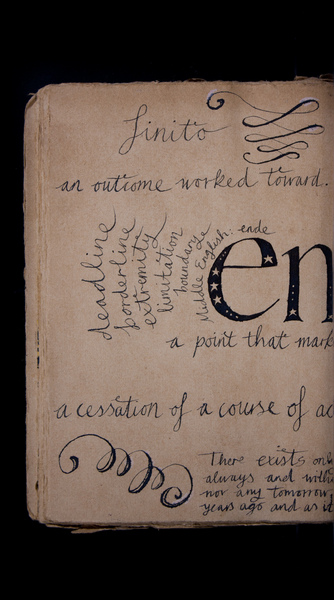 finito
an outcome worked toward.
deadline
borderline
extremity
limitation
boundary
Middle English: ende
en
a point that mark
a cessation of a course of ac
There exists only
always and witho
nor any tomorrow,
years ago and as it